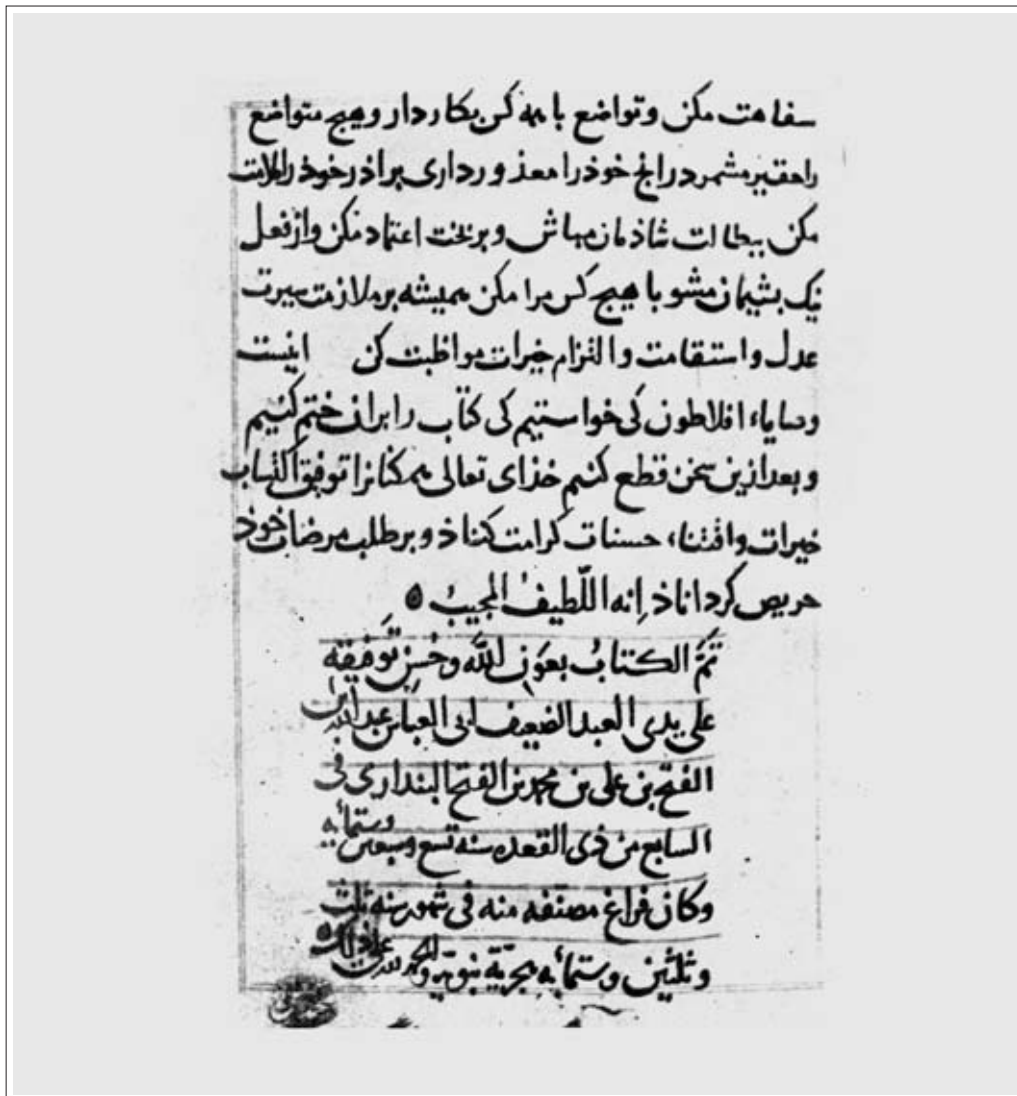 سفاهت مکن و تواضع با همه کس بکار دار و هیچ متواضع
را حقیر مشمر در انچ خوذ را معذور داری براذر خوذ را ملامت
مکن ببطالت شاذمان مباش و بر بخت اعتماد مکن و از فعل
نیک بشیمان مشو با هیچ کس مرا مکن همیشه بر ملازمت سیرت
عدل و استقامت و التزام خیرات مواظبت کن اینست
وصایاء افلاطون کی خواستیم کی کتاب را بران ختم کنیم
و بعد ازین سخن قطع کنیم خذای تعالی همکنانرا توفیق اکتساب
خیرات و اقتناء حسنات کرامت کناذ و بر طلب مرضات خوذ
حریص کرداناذ اِنه اللّطیفُ المجیبُ ه
تَمَّ الکتابُ بعَونِ اللّه وحُسنِ تَوفیقِه
علی یدی العبد الضعیف ابی العباس عبد الله بن
الفتح بن علی بن محمد بن الفتح البنداری فی
السابع من ذی القعده سنه تسع وسبعین وستمایه
وکان فراغ مصنّفه منه فی شهور سنه ثلث
وثلثین وستمأیه هجریّة نبویّه والحمد لله علی ذلک ه